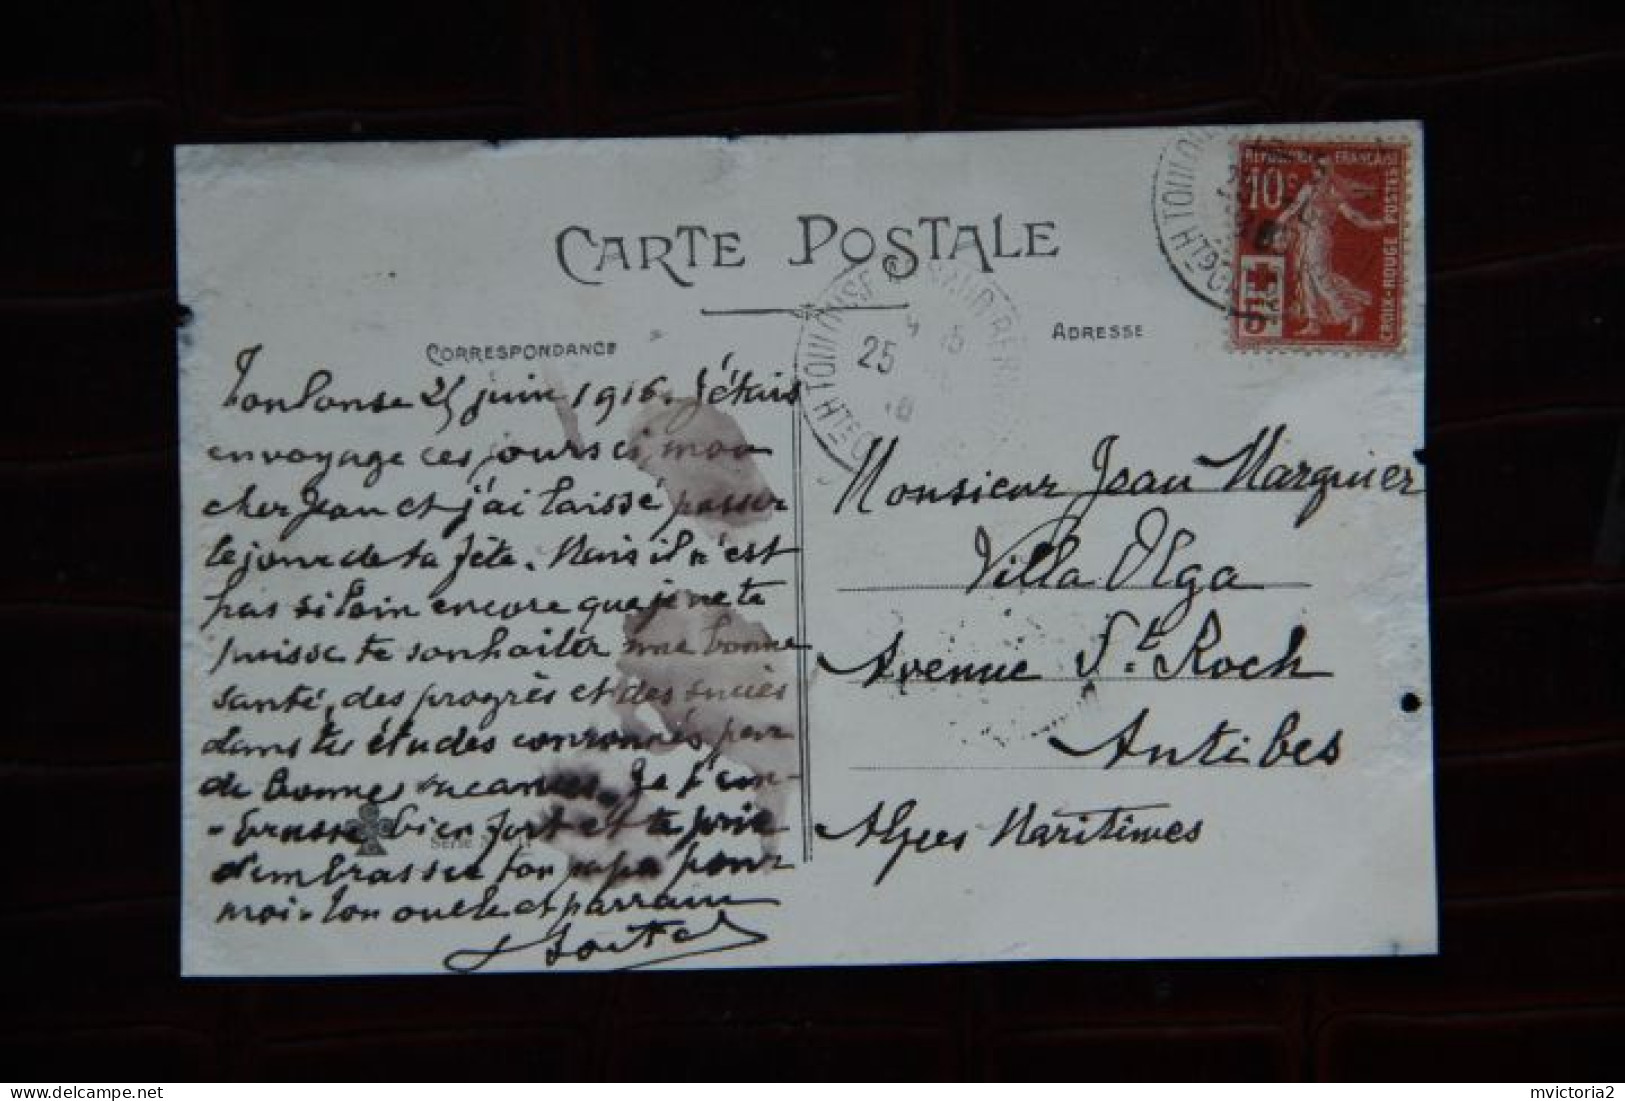 CARTE POSTALE
CORRESPONDANCE
Toulouse 25 juin 1916. J'étais
en voyage ces jours ci, mon
cher Jean et j'ai laissé passer
le jour de ta fête. Mais il n'est
pas si loin encore que je ne te
puisse te souhaiter une bonne
santé, des progrès et des succès
dans tes études couronnés par
de bonnes vacances. Je t'em-
-brasse bien fort et te prie
d'embrasser ton papa pour
moi. Ton oncle et parrain
Série N
ADRESSE
Monsieur Jean Marquier
Villa Olga
Avenue St. Roch
Antibes
Alpes Maritimes
TOULOUSE
25
Hte
TOULOUSE
REPUBLIQUE FRANÇAISE
10c
POSTES
CROIX-ROUGE
5c
www.delcampe.net
mvictoria2